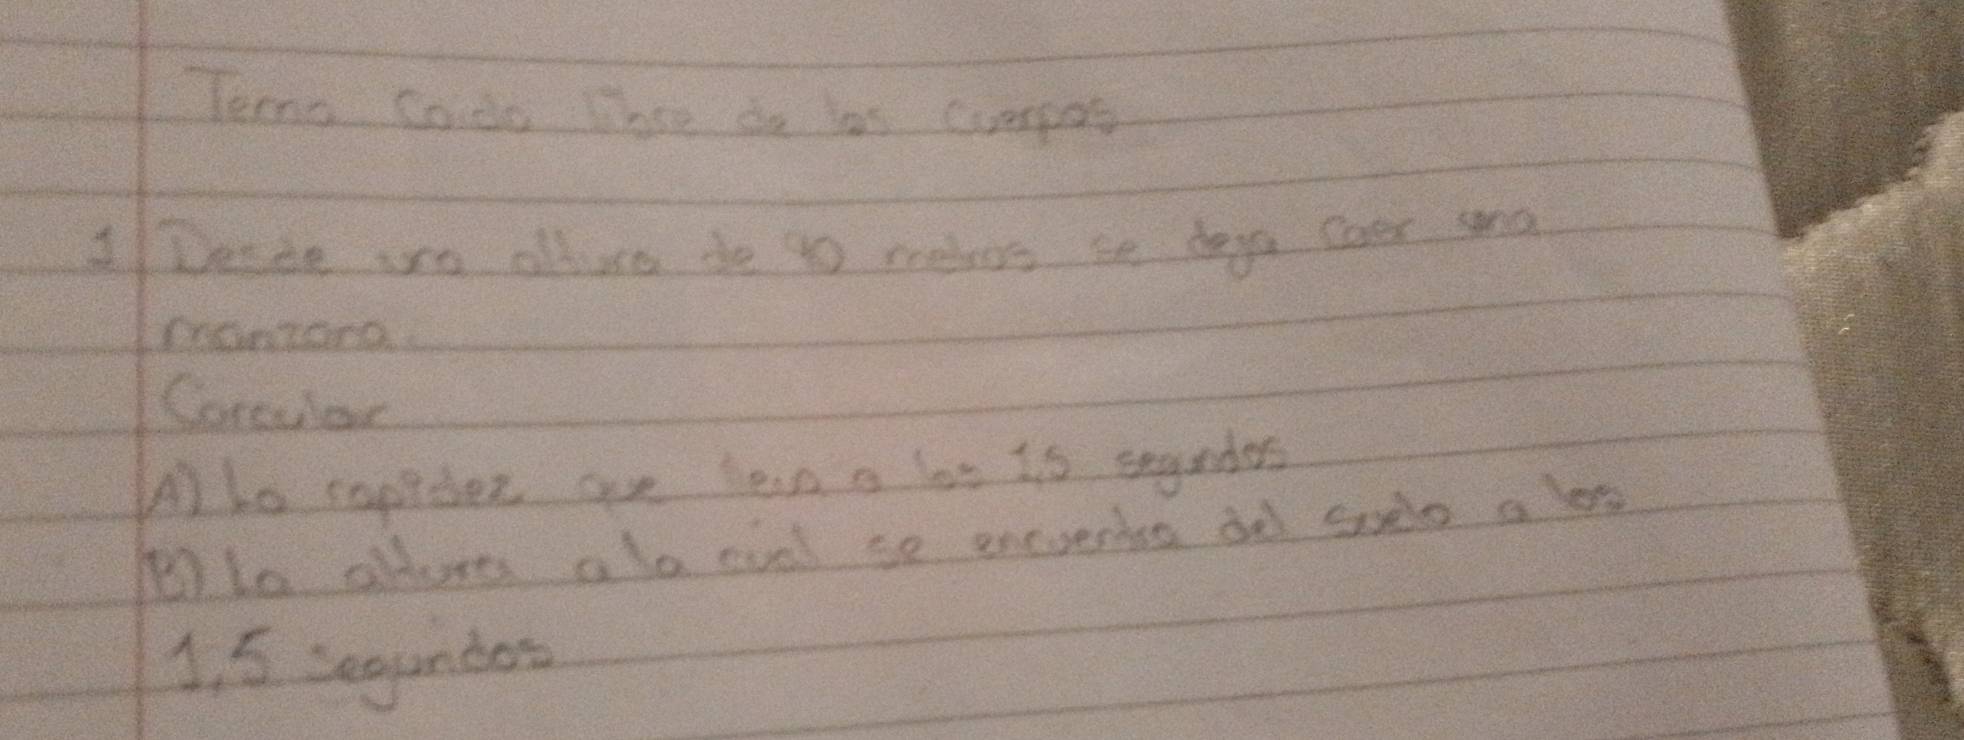 Tema Caida libre de los cuerpos
1 Desde una altura de metros se deja caer una
manzana
Carcular
A) La rapidez que a los 1.5 segundos
B) la altura a la cual se encuentra del suelo a los
1,5 segundos